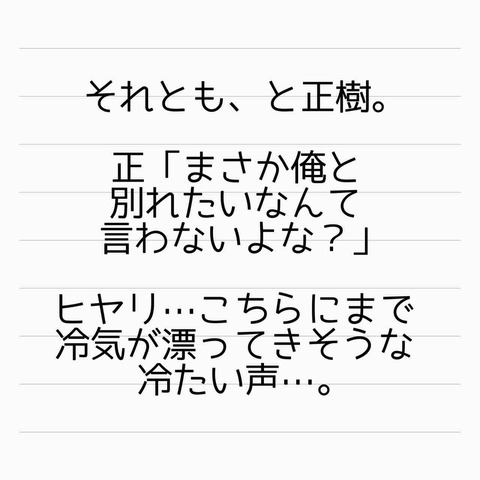 それとも、と正樹。
正「まさか俺と
別れたいなんて
言わないよな？」
ヒヤリ…こちらにまで
冷気が漂ってきそうな
冷たい声…。